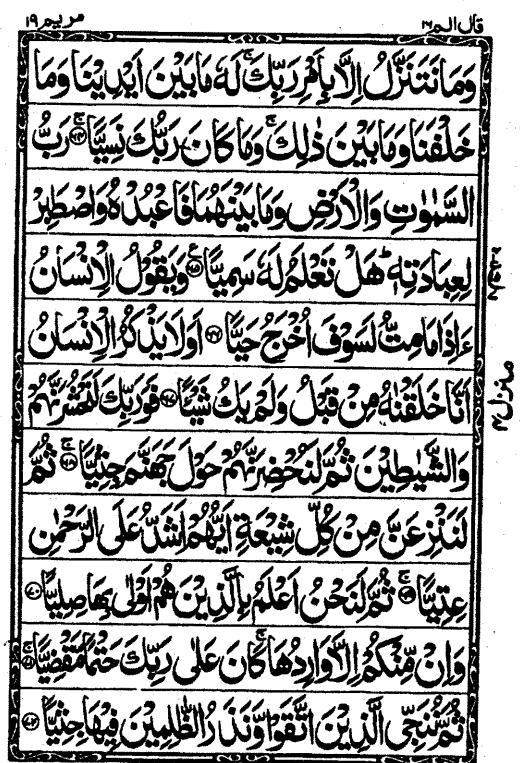 قال الم ١٦
مريم ١٩
وَمَا نَتَنَزَّلُ اِلَّا بِاَمْرِ رَبِّكَ ۚ لَهٗ مَا بَيْنَ اَيْدِيْنَا وَمَا
خَلْفَنَا وَمَا بَيْنَ ذٰلِكَ ۚ وَمَا كَانَ رَبُّكَ نَسِيًّا ۚ ﴿٦٤﴾ رَبُّ
السَّمٰوٰتِ وَالْاَرْضِ وَمَا بَيْنَهُمَا فَاعْبُدْهُ وَاصْطَبِرْ
لِعِبَادَتِهٖ ؕ هَلْ تَعْلَمُ لَهٗ سَمِيًّا ﴿٦٥﴾ ع وَيَقُوْلُ الْاِنْسَانُ
ءَاِذَا مَا مِتُّ لَسَوْفَ اُخْرَجُ حَيًّا ﴿٦٦﴾ اَوَلَا يَذْكُرُ الْاِنْسَانُ
اَنَّا خَلَقْنٰهُ مِنْ قَبْلُ وَلَمْ يَكُ شَيْـًٔا ﴿٦٧﴾ فَوَرَبِّكَ لَنَحْشُرَنَّهُمْ
وَالشَّيٰطِيْنَ ثُمَّ لَنُحْضِرَنَّهُمْ حَوْلَ جَهَنَّمَ جِثِيًّا ۚ ﴿٦٨﴾ ثُمَّ
لَنَنْزِعَنَّ مِنْ كُلِّ شِيْعَةٍ اَيُّهُمْ اَشَدُّ عَلَى الرَّحْمٰنِ
عِتِيًّا ۚ ﴿٦٩﴾ ثُمَّ لَنَحْنُ اَعْلَمُ بِالَّذِيْنَ هُمْ اَوْلٰى بِهَا صِلِيًّا ﴿٧٠﴾
وَاِنْ مِّنْكُمْ اِلَّا وَارِدُهَا ۚ كَانَ عَلٰى رَبِّكَ حَتْمًا مَّقْضِيًّا ۚ ﴿٧١﴾
ثُمَّ نُنَجِّى الَّذِيْنَ اتَّقَوْا وَّنَذَرُ الظّٰلِمِيْنَ فِيْهَا جِثِيًّا ﴿٧٢﴾
منزل ٤